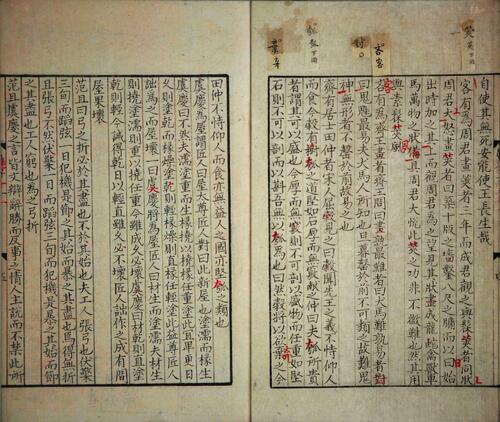 自使其無死安能使王長生哉
客有為周君畫筴者三年而成君觀之與髹筴者同狀
周君大怒畫筴者曰築十版之牆鑿八尺之牖而以日始
出時加之其上而觀周君為之望見其狀盡成龍蛇禽獸車
馬萬物之狀備具周君大悅此筴之功非不微難也然其用
與素髹筴同
客有為齊王畫者齊王問曰畫孰最難者曰犬馬難孰易者對
曰鬼魅最易夫犬馬人所知也旦暮罄於前不可類之故難鬼
神無形者不罄於前故易之也
齊有居士田仲者宋人屈穀見之曰穀聞先王之義不恃仰人
而食今穀有樹瓠之道堅如石厚而無竅獻之仲曰夫瓠所貴
者謂其可以盛也今厚而無竅則不可剖以盛物而任重如堅
石則不可以剖而以斟吾無以瓠為也曰然穀將以棄之今
田仲不恃仰人而食亦無益人之國亦堅瓠之類也
虞慶為屋謂匠人曰屋太尊匠人對曰此新屋也塗濡而椽生
虞慶曰不然夫濡塗重而生椽撓以撓椽任重塗此宜卑更日
久則塗乾而椽燥塗乾則輕椽燥則直椽任輕塗此益尊匠人
詘為之而屋壞一曰虞慶將為屋匠人曰材生而塗濡夫材生
則撓塗濡則重以撓任重今雖成久必壞虞慶曰材乾則直塗
乾則輕今誠得乾日以輕直雖久必不壞匠人詘作之成有間
屋果壞
范且曰弓之折必於其盡也不於其始也夫工人張弓也伏檠
三旬而蹈弦一日犯機是節之其始而暴之其盡也焉得無折
且張弓不然伏檠一日而蹈弦三旬而犯機是暴之其始而節
之其盡也工人窮也為之弓折
范且虞慶之言皆文辯辭勝而反事之情人主說而不禁此所